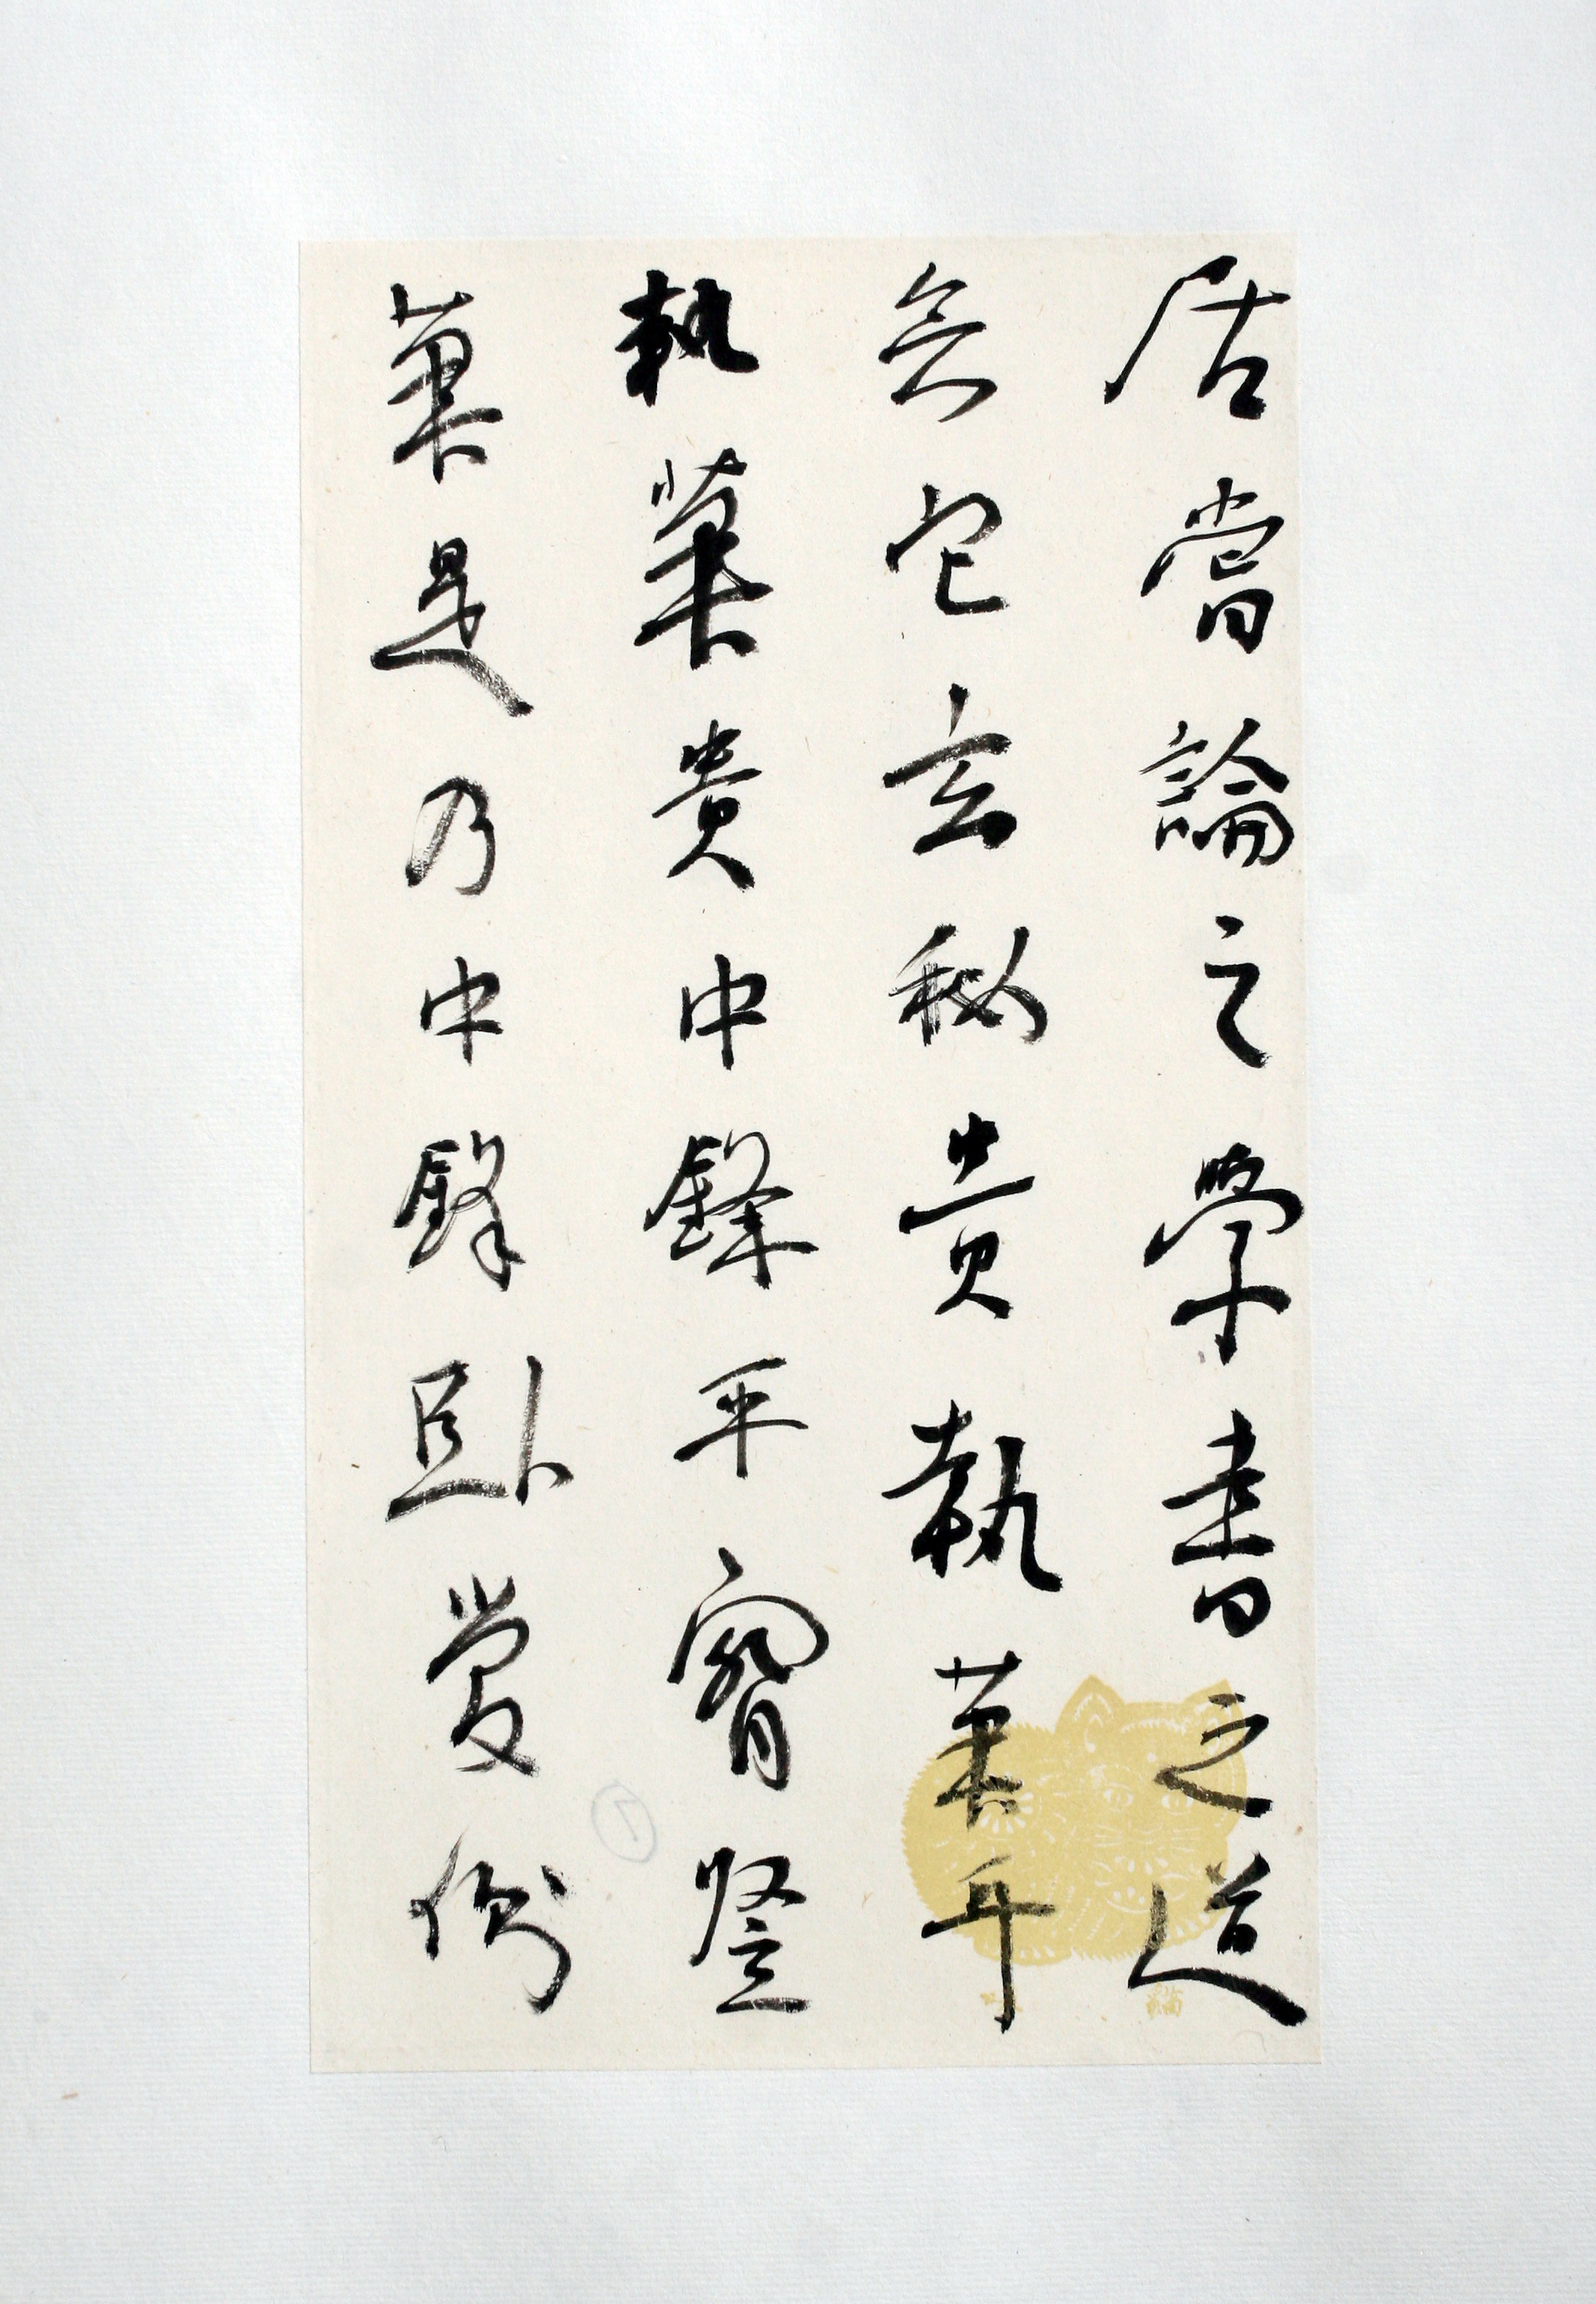 居嘗論之學書之道
無它玄秘貴執筆耳
執筆貴中鋒平腕豎
筆是乃中鋒卧管側